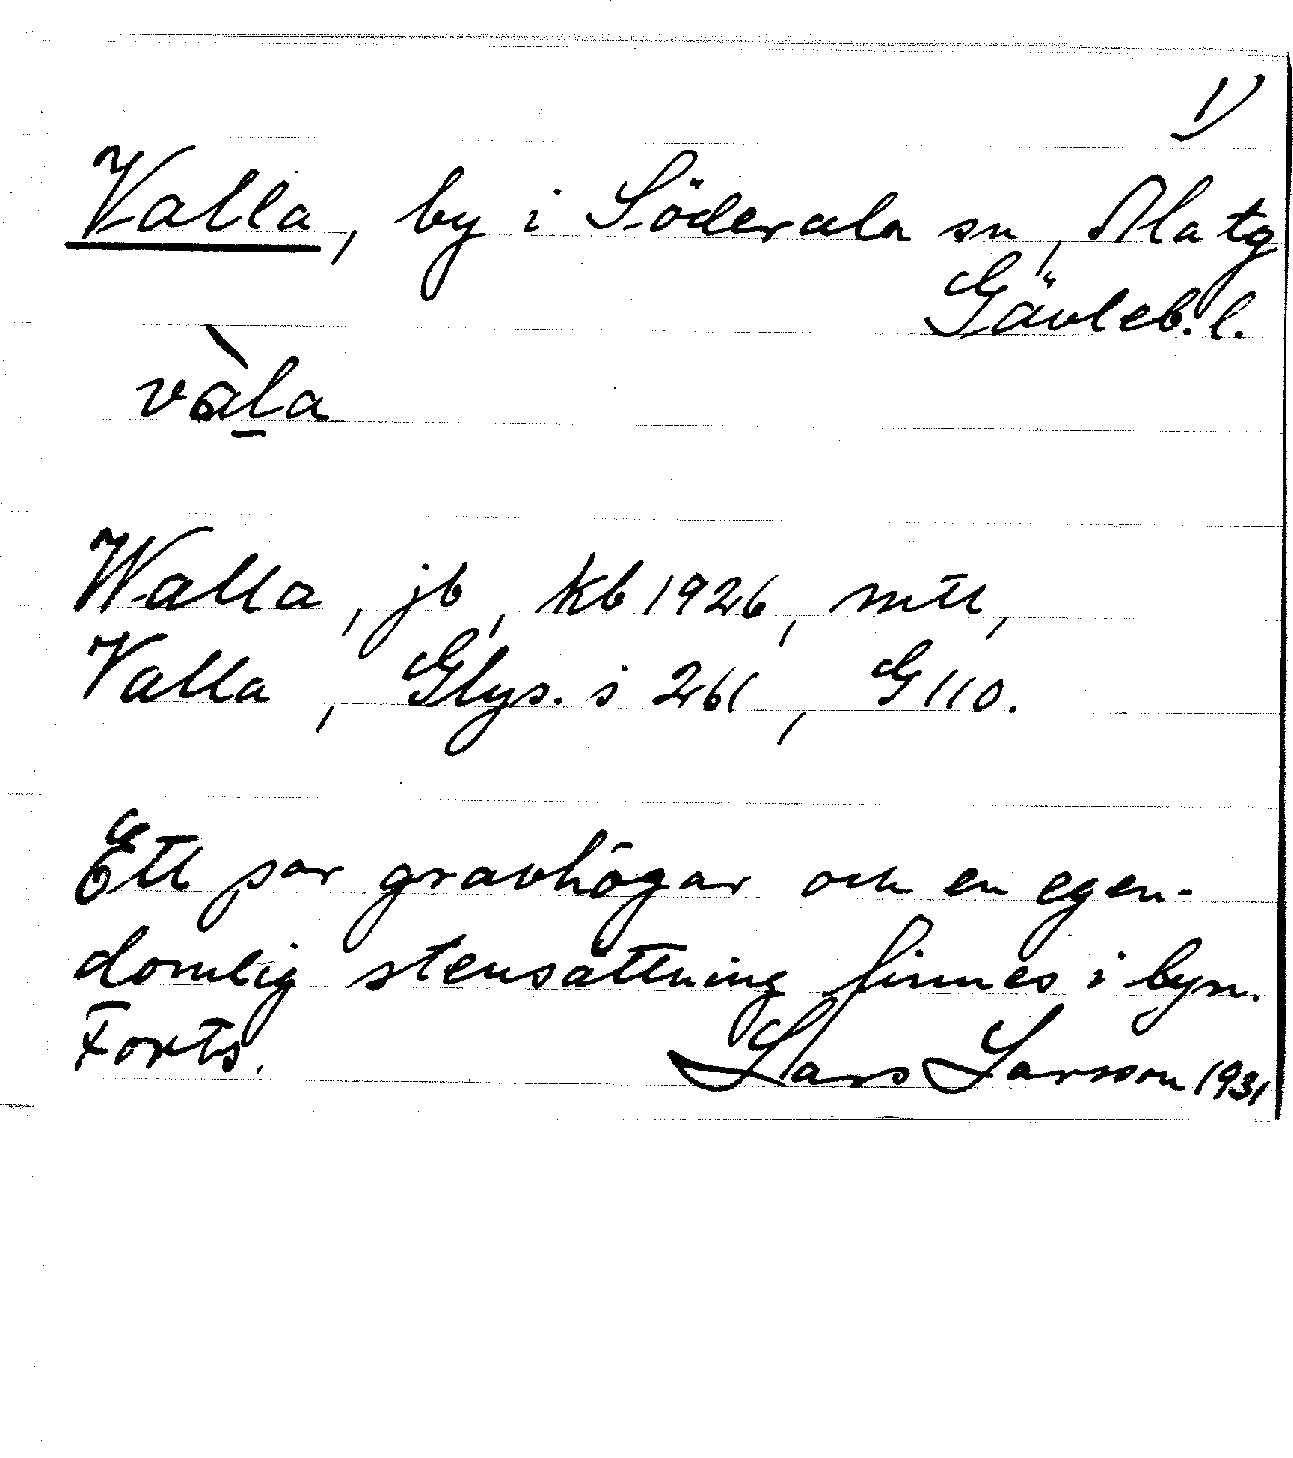 1)
Valla, by i Söderala sn, Ala tg
Gävleb. l.
vàla
Walla, jb, kb 1926, mtl,
Valla, Glys. s 261, G 110.
Ett par gravhögar och en egen-
domlig stensättning finnes i byn.
Forts. Lars Larsson 1931